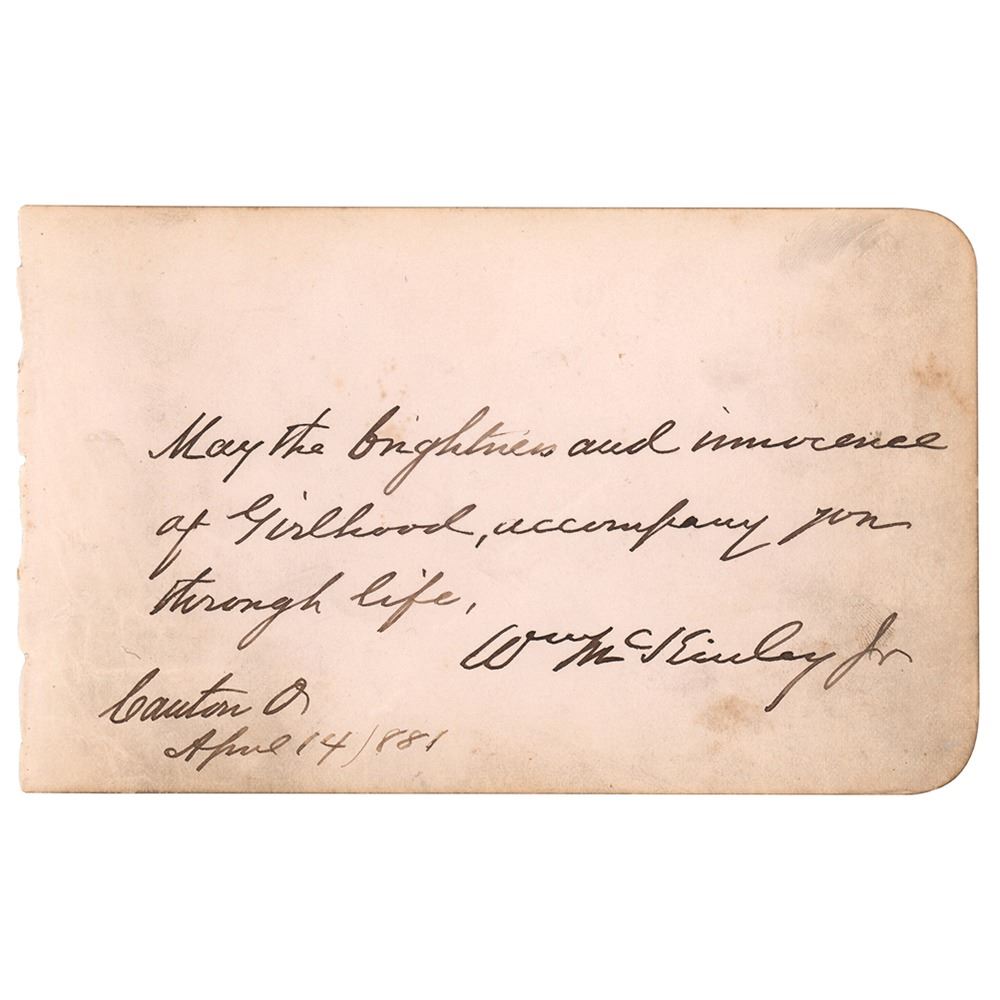 May the brightness and innocence
of Girlhood, accompany you
through life,
Wm McKinley Jr
Canton O
April 14/881